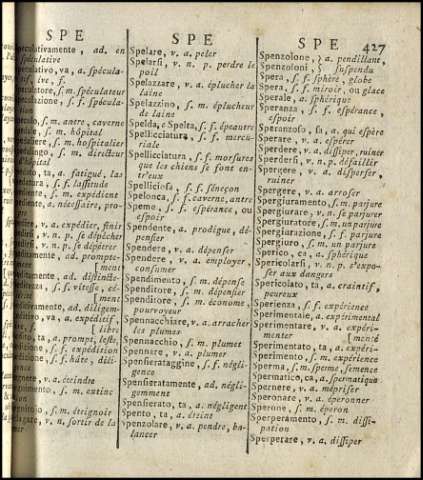 SPE
SPE
SPE
427
speculativamente, ad. en
spéculative
lativo, va, a. spécula-
if, ive, f.
latore, s. m. spéculateur
lazione, s. f. spécula-
s. m. antre, caverne
s. m. hôpital
s. m. hospitalier
s. m. directeur
d'hôpital
ta, a. fatigué, las
s. f. lassitude
s. m. expédient
a. nécessaire, pro-
v. a. expédier, finir
v. n. p. se dépêcher
v. n. p. se dépêtrer
ad. prompte-
[ment
ad.
s. f. vitesse,
[ment
ad. diligem-
va, a. expéditif,
[libre
ta, a. prompt, leste,
s. f. expédition
s. f. hâte, dili-
gence
v. a. éteindre
s. m. extinc
tion
s. m. éteignoir
v. n. sortir de la
Spelare, v. a. peler
Spelarsi, v. n. p. perdre le
poil
Spelazzare, v. a. éplucher la
laine
Spelazzino, s. m. éplucheur
de laine
Spelda, e Spelta, s. f. épeautre
Spellicciatura, s. f. mercu-
riale
Spellicciatura, s. f. morsures
que les chiens se font en-
tr'eux
Spelliciosa, s. f. séneçon
Spelonca, s. f. caverne, antre
Speme, s. f. espérance, ou
espoir
Spendente, a. prodigue, dé-
pensier
Spendere, v. a. dépenser
Spendere, v. a. employer,
consumer
Spendimento, s. m. dépense
Spenditore, s. m. dépensier
Spenditore, s. m. économe,
pourvoyeur
Spennacchiare, v. a. arracher
les plumes
Spennacchio, s. m. plumet
Spennare, v. a. plumer
Spensierataggine, s. f. négli-
gence
Spensieratamente, ad. négli-
gemment
Spensierato, ta, a. négligent
Spento, ta, a. éteint
Spenzolare, v. a. pendre, ba-
lancer
Spenzolone, } a. pendillant,
Spenzoloni, } suspendu
Spera, s. f. sphère, globe
Spera, s. f. miroir, ou glace
Sperale, a. sphérique
Speranza, s. f. espérance,
espoir
Speranzoso, sa, a. qui espère
Sperare, v. a. espérer
Sperdere, v. a. dissiper, ruiner
Sperdersi, v. n. p. défaillir
Spergere, v. a. disperser,
ruiner
Spergere, v. a. arroser
Spergiuramento, s. m. parjure
Spergiurare, v. n. se parjurer
Spergiuratore, s. m. un parjure
Spergiurazione, s. f. parjure
Spergiuro, s. m. un parjure
Sperico, ca, a. sphérique
Spericolarsi, v. n. p. s'expo-
ser aux dangers
Spericolato, ta, a. craintif,
peureux
Sperienza, s. f. expérience
Sperimentale, a. expérimental
Sperimentare, v. a. expéri-
menter [menté
Sperimentato, ta, a. expéri-
Sperimento, s. m. expérience
Sperma, s. m. sperme, semence
Spermatico, ca, a. spermatique
Spernere, v. a. mépriser
Speronare, v. a. éperonner
Sperone, s. m. éperon
Sperperamento, s. m. dissi-
pation
Sperperare, v. a. dissiper